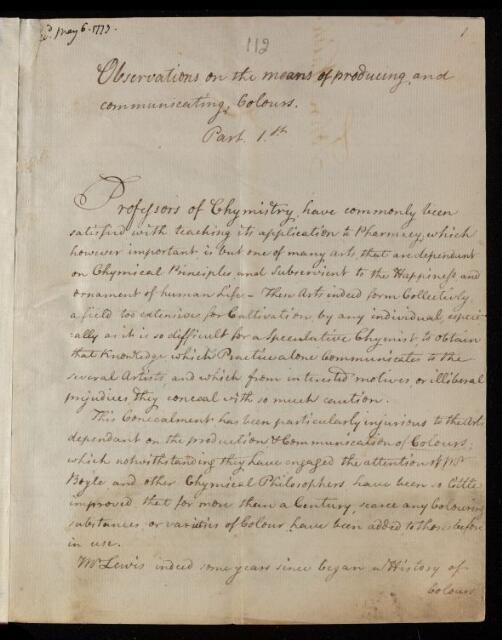 d. May 6. 1773.
112
1
Observations on the means of producing and
communicating Colours.
Part. 1.st
Professors of Chymistry have commonly been
satisfied with teaching its application to Pharmacy, which
however important is but one of many Arts that are dependant
on Chymical Principles and Subservient to the Happiness and
ornament of human Life – These Arts indeed form Collectively
a field too extensive for Cultivation by any individual, especi-
-ally as it is so difficult for a Speculative Chymist to obtain
that Knowledge which Practice alone Communicates to the
several Artists and which from interested motives or illiberal
prejudices they conceal with so much caution.
This Concealment has been particularly injurious to the Arts
dependant on the production & Communication of Colours;
which notwithstanding they have engaged the attention of Mr.
Boyle and other Chymical Philosophers have been so little
improved that for more than a Century, scarce any Colouring
substances or varieties of Colour have been added to those before
in use.
Mr. Lewis indeed some years since began a History of
Colours